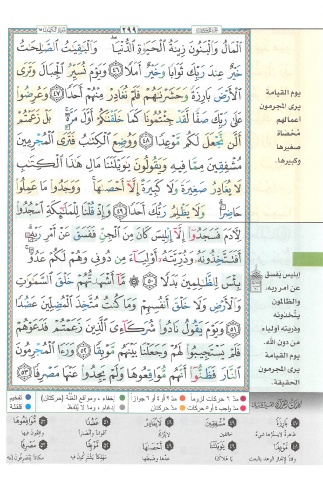 ٢٩٩
ٱلْمَالُ وَٱلْبَنُونَ زِينَةُ ٱلْحَيَوٰةِ ٱلدُّنْيَا ۖ وَٱلْبَٰقِيَٰتُ ٱلصَّٰلِحَٰتُ
خَيْرٌ عِندَ رَبِّكَ ثَوَابًا وَخَيْرٌ أَمَلًا ﴿٤٦﴾ وَيَوْمَ نُسَيِّرُ ٱلْجِبَالَ وَتَرَى
ٱلْأَرْضَ بَارِزَةً وَحَشَرْنَٰهُمْ فَلَمْ نُغَادِرْ مِنْهُمْ أَحَدًا ﴿٤٧﴾ وَعُرِضُوا۟
عَلَىٰ رَبِّكَ صَفًّا لَّقَدْ جِئْتُمُونَا كَمَا خَلَقْنَٰكُمْ أَوَّلَ مَرَّةٍۭ ۚ بَلْ زَعَمْتُمْ
أَلَّن نَّجْعَلَ لَكُم مَّوْعِدًا ﴿٤٨﴾ وَوُضِعَ ٱلْكِتَٰبُ فَتَرَى ٱلْمُجْرِمِينَ
مُشْفِقِينَ مِمَّا فِيهِ وَيَقُولُونَ يَٰوَيْلَتَنَا مَالِ هَٰذَا ٱلْكِتَٰبِ
لَا يُغَادِرُ صَغِيرَةً وَلَا كَبِيرَةً إِلَّآ أَحْصَىٰهَا ۚ وَوَجَدُوا۟ مَا عَمِلُوا۟
حَاضِرًا ۗ وَلَا يَظْلِمُ رَبُّكَ أَحَدًا ﴿٤٩﴾ وَإِذْ قُلْنَا لِلْمَلَٰٓئِكَةِ ٱسْجُدُوا۟
لِءَادَمَ فَسَجَدُوٓا۟ إِلَّآ إِبْلِيسَ كَانَ مِنَ ٱلْجِنِّ فَفَسَقَ عَنْ أَمْرِ رَبِّهِۦٓ ۗ
أَفَتَتَّخِذُونَهُۥ وَذُرِّيَّتَهُۥٓ أَوْلِيَآءَ مِن دُونِى وَهُمْ لَكُمْ عَدُوٌّۢ ۚ
بِئْسَ لِلظَّٰلِمِينَ بَدَلًا ﴿٥٠﴾ مَّآ أَشْهَدتُّهُمْ خَلْقَ ٱلسَّمَٰوَٰتِ
وَٱلْأَرْضِ وَلَا خَلْقَ أَنفُسِهِمْ وَمَا كُنتُ مُتَّخِذَ ٱلْمُضِلِّينَ عَضُدًا
﴿٥١﴾ وَيَوْمَ يَقُولُ نَادُوا۟ شُرَكَآءِىَ ٱلَّذِينَ زَعَمْتُمْ فَدَعَوْهُمْ
فَلَمْ يَسْتَجِيبُوا۟ لَهُمْ وَجَعَلْنَا بَيْنَهُم مَّوْبِقًا ﴿٥٢﴾ وَرَءَا ٱلْمُجْرِمُونَ
ٱلنَّارَ فَظَنُّوٓا۟ أَنَّهُم مُّوَاقِعُوهَا وَلَمْ يَجِدُوا۟ عَنْهَا مَصْرِفًا ﴿٥٣﴾
يوم القيامة
يرى المجرمون
أعمالهم
مُحْصاة
صغيرها
وكبيرها.
إبليس يفسق
عن أمر ربه،
والظالمون
يتخذونه
وذريته أولياء
من دون الله،
يوم القيامة
يرى المجرمون
الحقيقة.
مد ٦ حركات لزوماً
مد ٢ أو ٤ أو ٦ جوازاً
إخفاء، ومواقع الغنّة (حركتان)
تفخيم
مد واجب ٤ أو ٥ حركات
مد حركتان
إدغام، وما لا يُلفظ
قلقلة
بَارِزَةً
مَوْعِدًا
مُشْفِقِينَ
يَا وَيْلَتَنَا
لَا يُغَادِرُ
أَحْصَاهَا
عَضُدًا
مَوْبِقًا
مُوَاقِعُوهَا
مَصْرِفًا